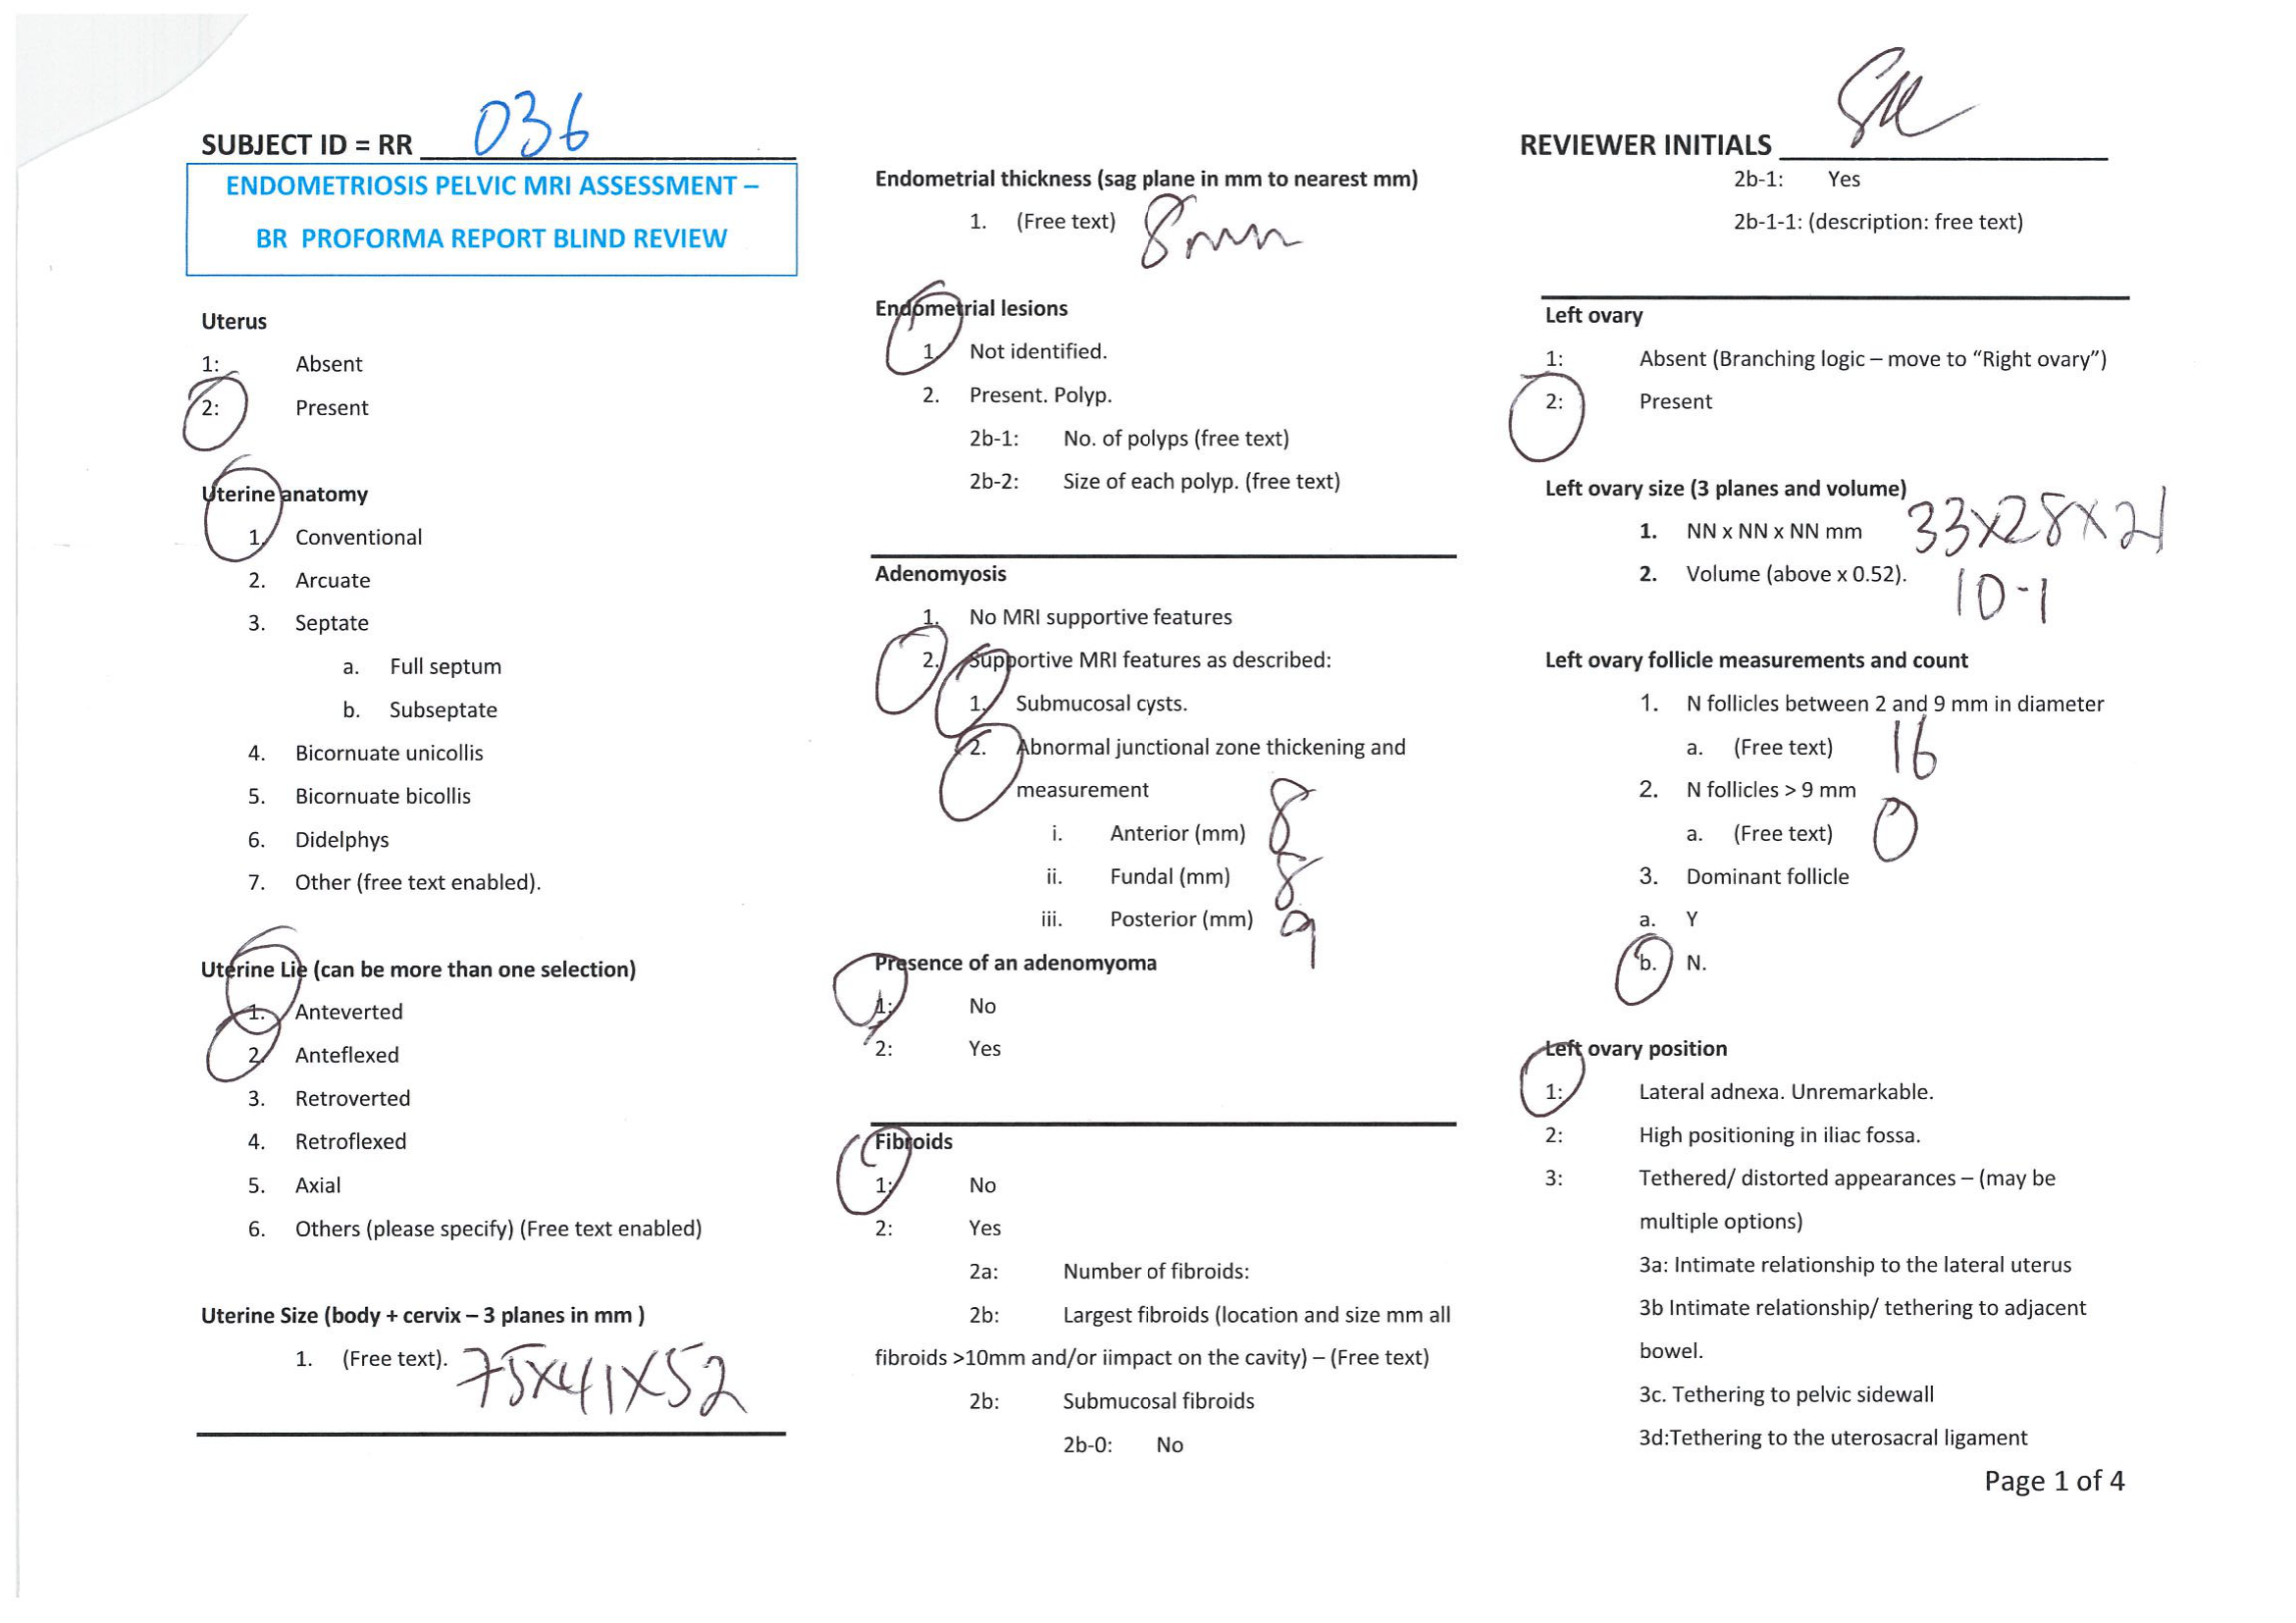 SUBJECT ID = RR 036
ENDOMETRIOSIS PELVIC MRI ASSESSMENT –
BR PROFORMA REPORT BLIND REVIEW
Uterus
1: Absent
2: Present
Uterine anatomy
1. Conventional
2. Arcuate
3. Septate
a. Full septum
b. Subseptate
4. Bicornuate unicollis
5. Bicornuate bicollis
6. Didelphys
7. Other (free text enabled).
Uterine Lie (can be more than one selection)
1. Anteverted
2. Anteflexed
3. Retroverted
4. Retroflexed
5. Axial
6. Others (please specify) (Free text enabled)
Uterine Size (body + cervix – 3 planes in mm )
1. (Free text). 75x41x52
Endometrial thickness (sag plane in mm to nearest mm)
1. (Free text) 8mm
Endometrial lesions
1. Not identified.
2. Present. Polyp.
2b-1: No. of polyps (free text)
2b-2: Size of each polyp. (free text)
Adenomyosis
1. No MRI supportive features
2. Supportive MRI features as described:
1. Submucosal cysts.
2. Abnormal junctional zone thickening and
measurement
i. Anterior (mm) 8
ii. Fundal (mm) 8
iii. Posterior (mm) 9
Presence of an adenomyoma
1: No
2: Yes
Fibroids
1: No
2: Yes
2a: Number of fibroids:
2b: Largest fibroids (location and size mm all
fibroids >10mm and/or iimpact on the cavity) – (Free text)
2b: Submucosal fibroids
2b-0: No
REVIEWER INITIALS
2b-1: Yes
2b-1-1: (description: free text)
Left ovary
1: Absent (Branching logic – move to “Right ovary”)
2: Present
Left ovary size (3 planes and volume)
1. NN x NN x NN mm 33x28x21
2. Volume (above x 0.52). 10-1
Left ovary follicle measurements and count
1. N follicles between 2 and 9 mm in diameter
a. (Free text) 16
2. N follicles > 9 mm
a. (Free text) 0
3. Dominant follicle
a. Y
b. N.
Left ovary position
1: Lateral adnexa. Unremarkable.
2: High positioning in iliac fossa.
3: Tethered/ distorted appearances – (may be
multiple options)
3a: Intimate relationship to the lateral uterus
3b Intimate relationship/ tethering to adjacent
bowel.
3c. Tethering to pelvic sidewall
3d:Tethering to the uterosacral ligament
Page 1 of 4